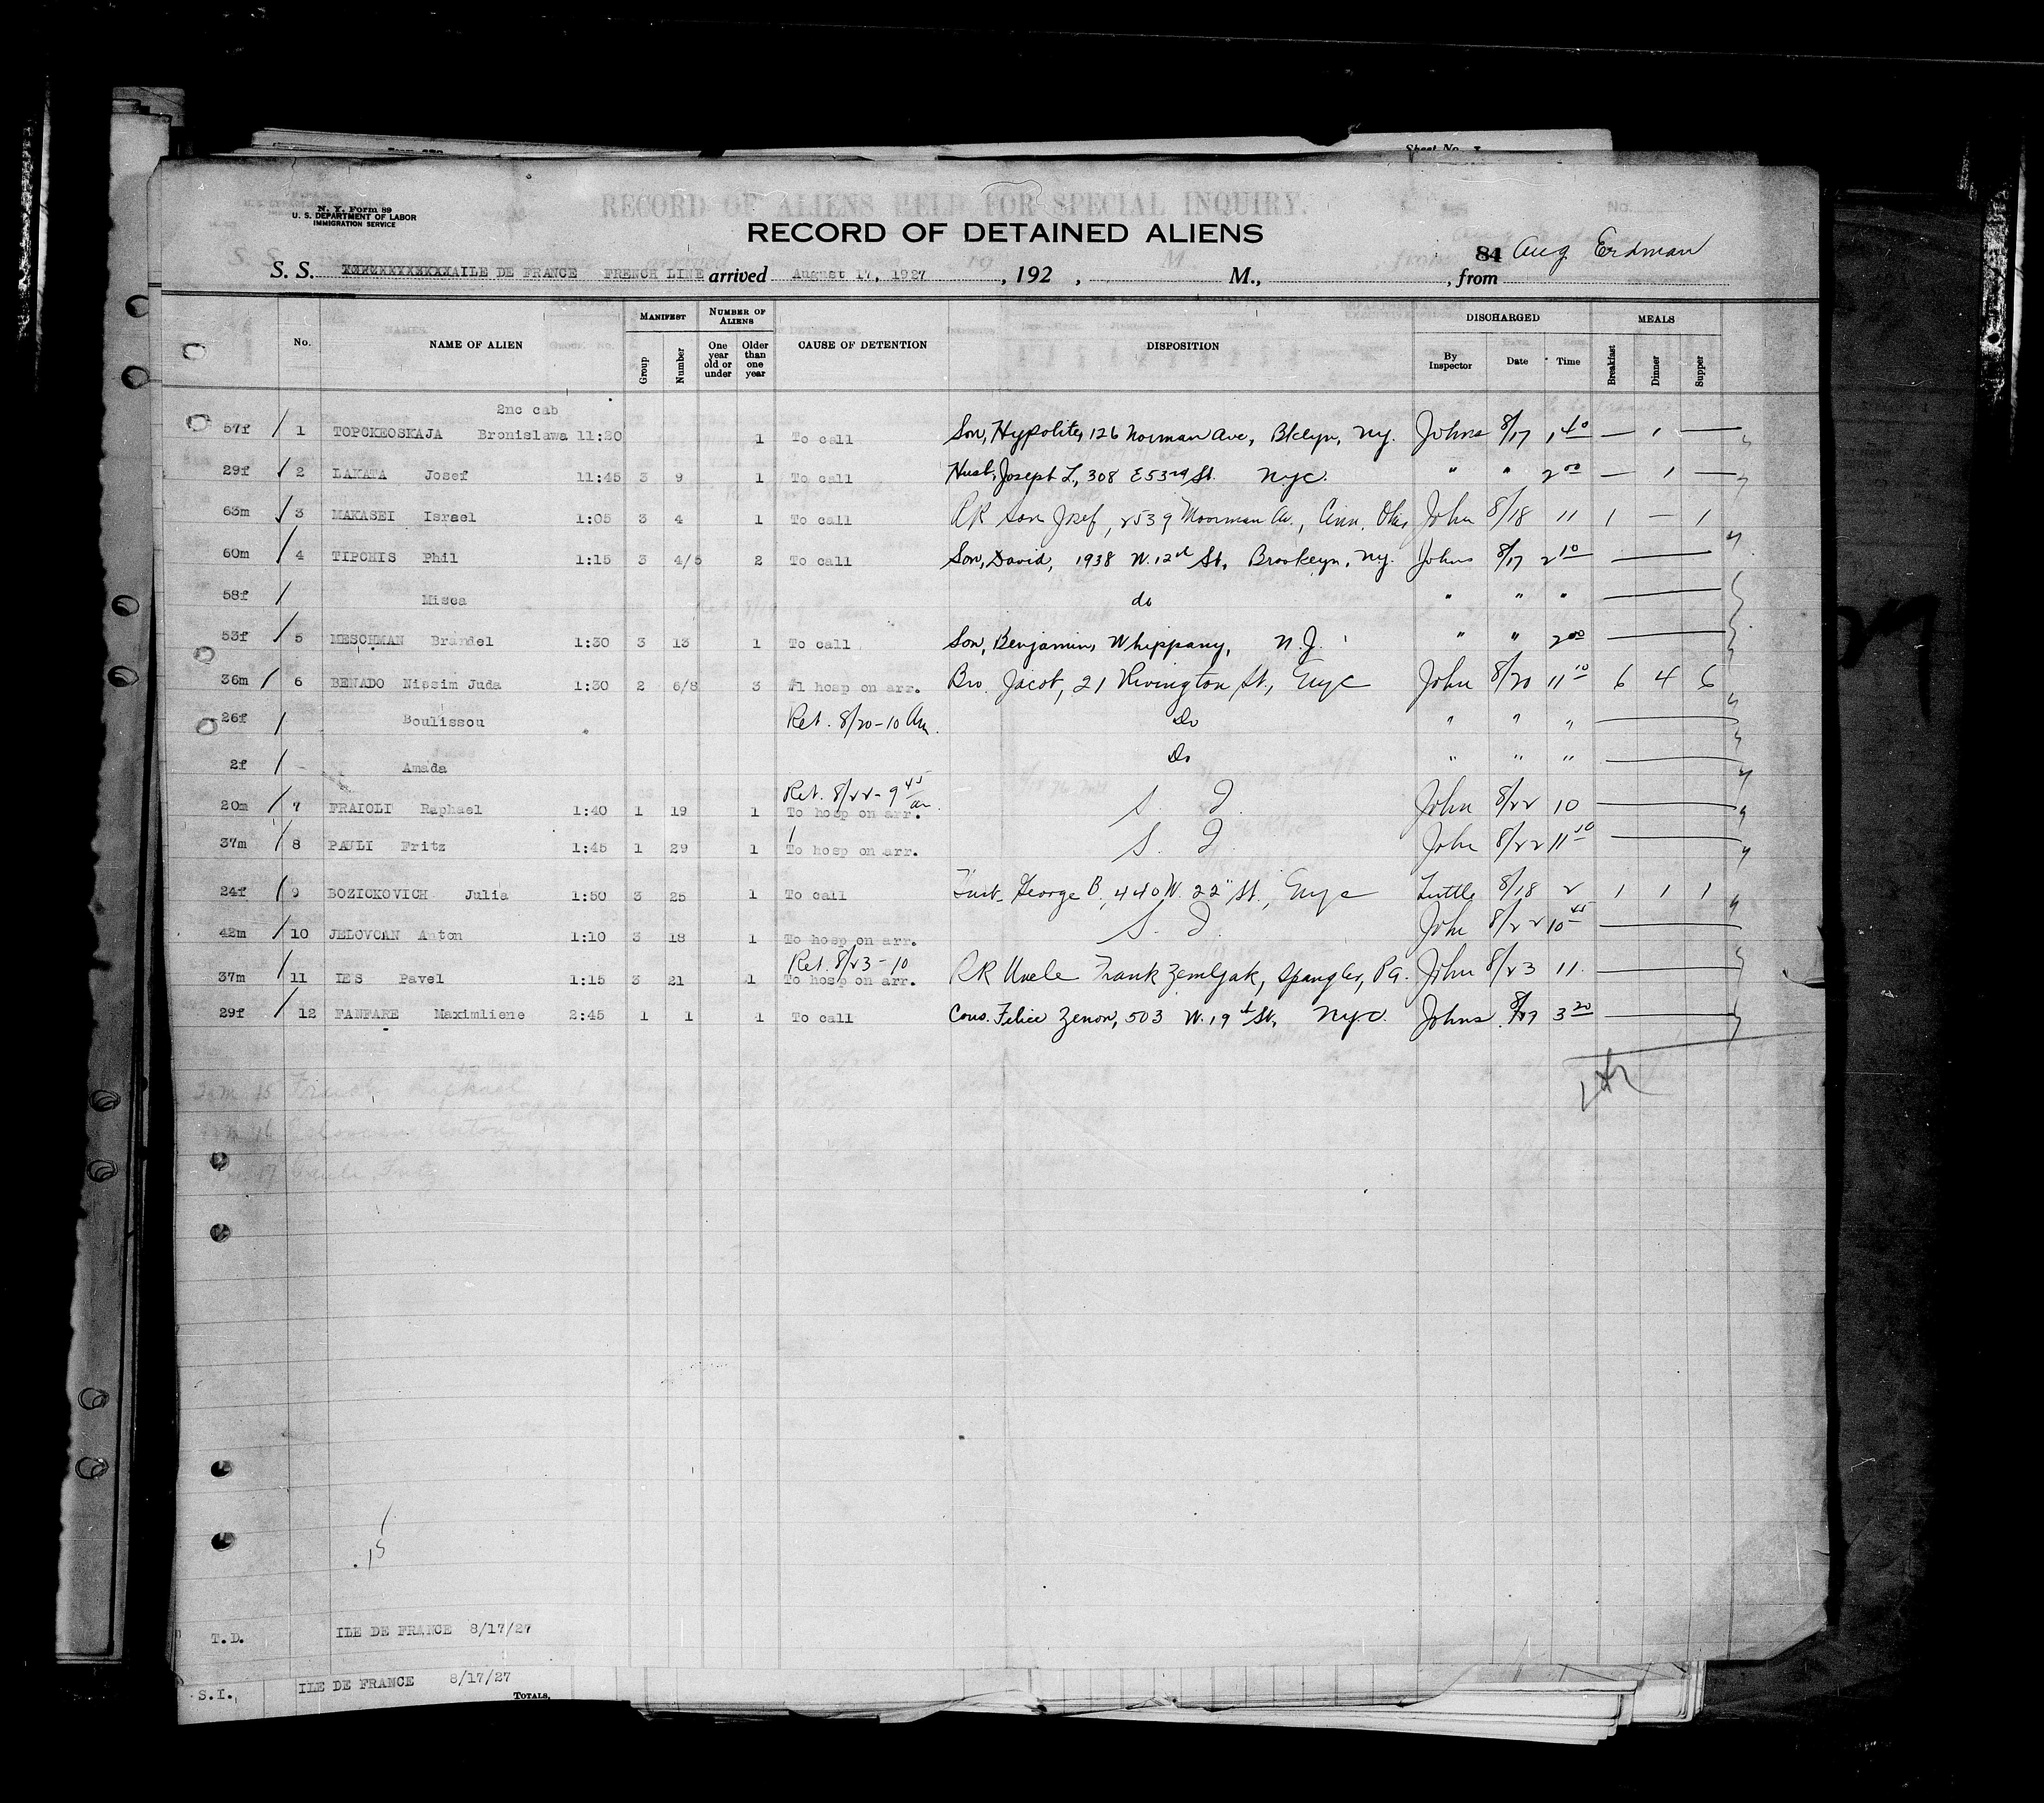 Sheet No.
RECORD OF ALIENS HELD FOR SPECIAL INQUIRY.
N. Y. Form 89
U. S. DEPARTMENT OF LABOR
IMMIGRATION SERVICE
RECORD OF DETAINED ALIENS
84 Aug Erdman
S. S. ILE DE FRANCE FRENCH LINE arrived August 17, 1927, 192 , M., , from
No. NAME OF ALIEN MANIFEST Group Number NUMBER OF ALIENS One year old or under Older than one year CAUSE OF DETENTION DISPOSITION DISCHARGED By Inspector Date Time MEALS Breakfast Dinner Supper
2nc cab
57f / 1 TOPCKEOSKAJA Bronislawa 11:20 1 To call Son, Hypolite, 126 Norman Ave, Bklyn, Ny. Johns 8/17 1 40 — 1 —
29f / 2 LAKATA Josef 11:45 3 9 1 To call Husb, Joseph L, 308 E 53rd St. Nyc. " " 2 00 — 1 —
63m / 3 MAKASEI Israel 1:05 3 4 1 To call RR Son Josef, 2539 Moorman Av., Cinn, Ohio John 8/18 11 1 — 1
60m / 4 TIPCHIS Phil 1:15 3 4/5 2 To call Son, David, 1938 W. 12th St, Brooklyn, Ny. Johns 8/17 2 10 —
58f / Misca do " " " —
53f / 5 MESCHMAN Brandel 1:30 3 13 1 To call Son, Benjamin, Whippany, N.J. " " 2 00 —
36m / 6 BENADO Nissim Juda 1:30 2 6/8 3 #1 hosp on arr. Bro. Jacob, 21 Rivington St., Nyc John 8/20 11 10 6 4 6
26f / Boulissou Ret. 8/20-10 Am. Do " " " —
2f / Amada Do " " " —
Ret. 8/22-9 45 am.
20m / 7 FRAIOLI Raphael 1:40 1 19 1 To hosp on arr. S. I. John 8/22 10 —
37m / 8 PAULI Fritz 1:45 1 29 1 To hosp on arr. S. I. John 8/22 11 10 —
24f / 9 BOZICKOVICH Julia 1:50 3 25 1 To call Husb. George B, 440 W. 22" St., Nyc Tuttle 8/18 2 1 1 1
42m / 10 JELOVCAN Anton 1:10 3 18 1 To hosp on arr. S. I. John 8/22 10 45 —
Ret. 8/23-10
37m / 11 IES Pavel 1:15 3 21 1 To hosp on arr. RR Uncle Frank Zemljak, Spangler, Pa. John 8/23 11 —
29f / 12 FANFARE Maximliene 2:45 1 1 1 To call Cous. Felice Zenon, 503 W. 19th St, Nyc. Johns 8/17 3 20 —
15
T.D. ILE DE FRANCE 8/17/27
S.I. ILE DE FRANCE 8/17/27
TOTALS,